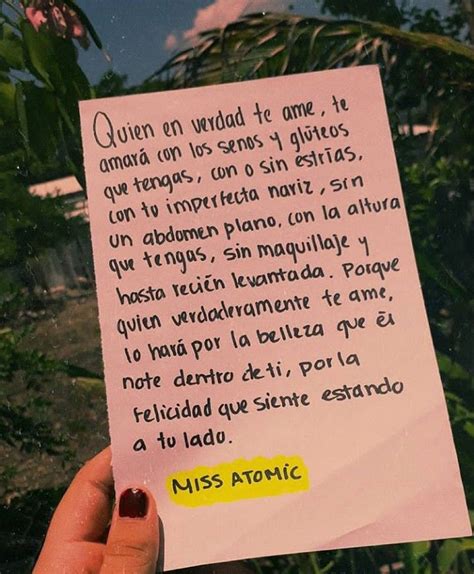 Quien en verdad te ame, te
amará con los senos y glúteos
que tengas, con o sin estrías,
con tu imperfecta nariz, sin
un abdomen plano, con la altura
que tengas, sin maquillaje y
hasta recién levantada. Porque
quien verdaderamente te ame,
lo hará por la belleza que él
note dentro de ti, por la
felicidad que siente estando
a tu lado.
MISS ATOMIC